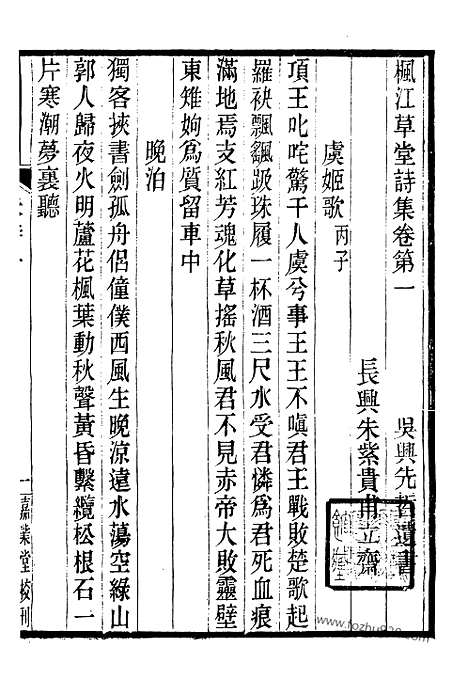 楓江草堂詩集卷第一
吳興先哲遺書
長興朱紫貴甫立齋
虞姬歌丙子
項王叱咤驚千人虞兮事王王不嗔君王戰敗楚歌起
羅袂飄颻趿珠履一杯酒三尺水受君憐為君死血痕
滿地焉支紅芳魂化草搖秋風君不見赤帝大敗靈壁
東雉姁為質留車中
晚泊
獨客挾書劍孤舟侶僮僕西風生晚涼遠水蕩空綠山
郭人歸夜火明蘆花楓葉動秋聲黃昏繫纜松根石一
片寒潮夢裏聽
一嘉業堂校刊